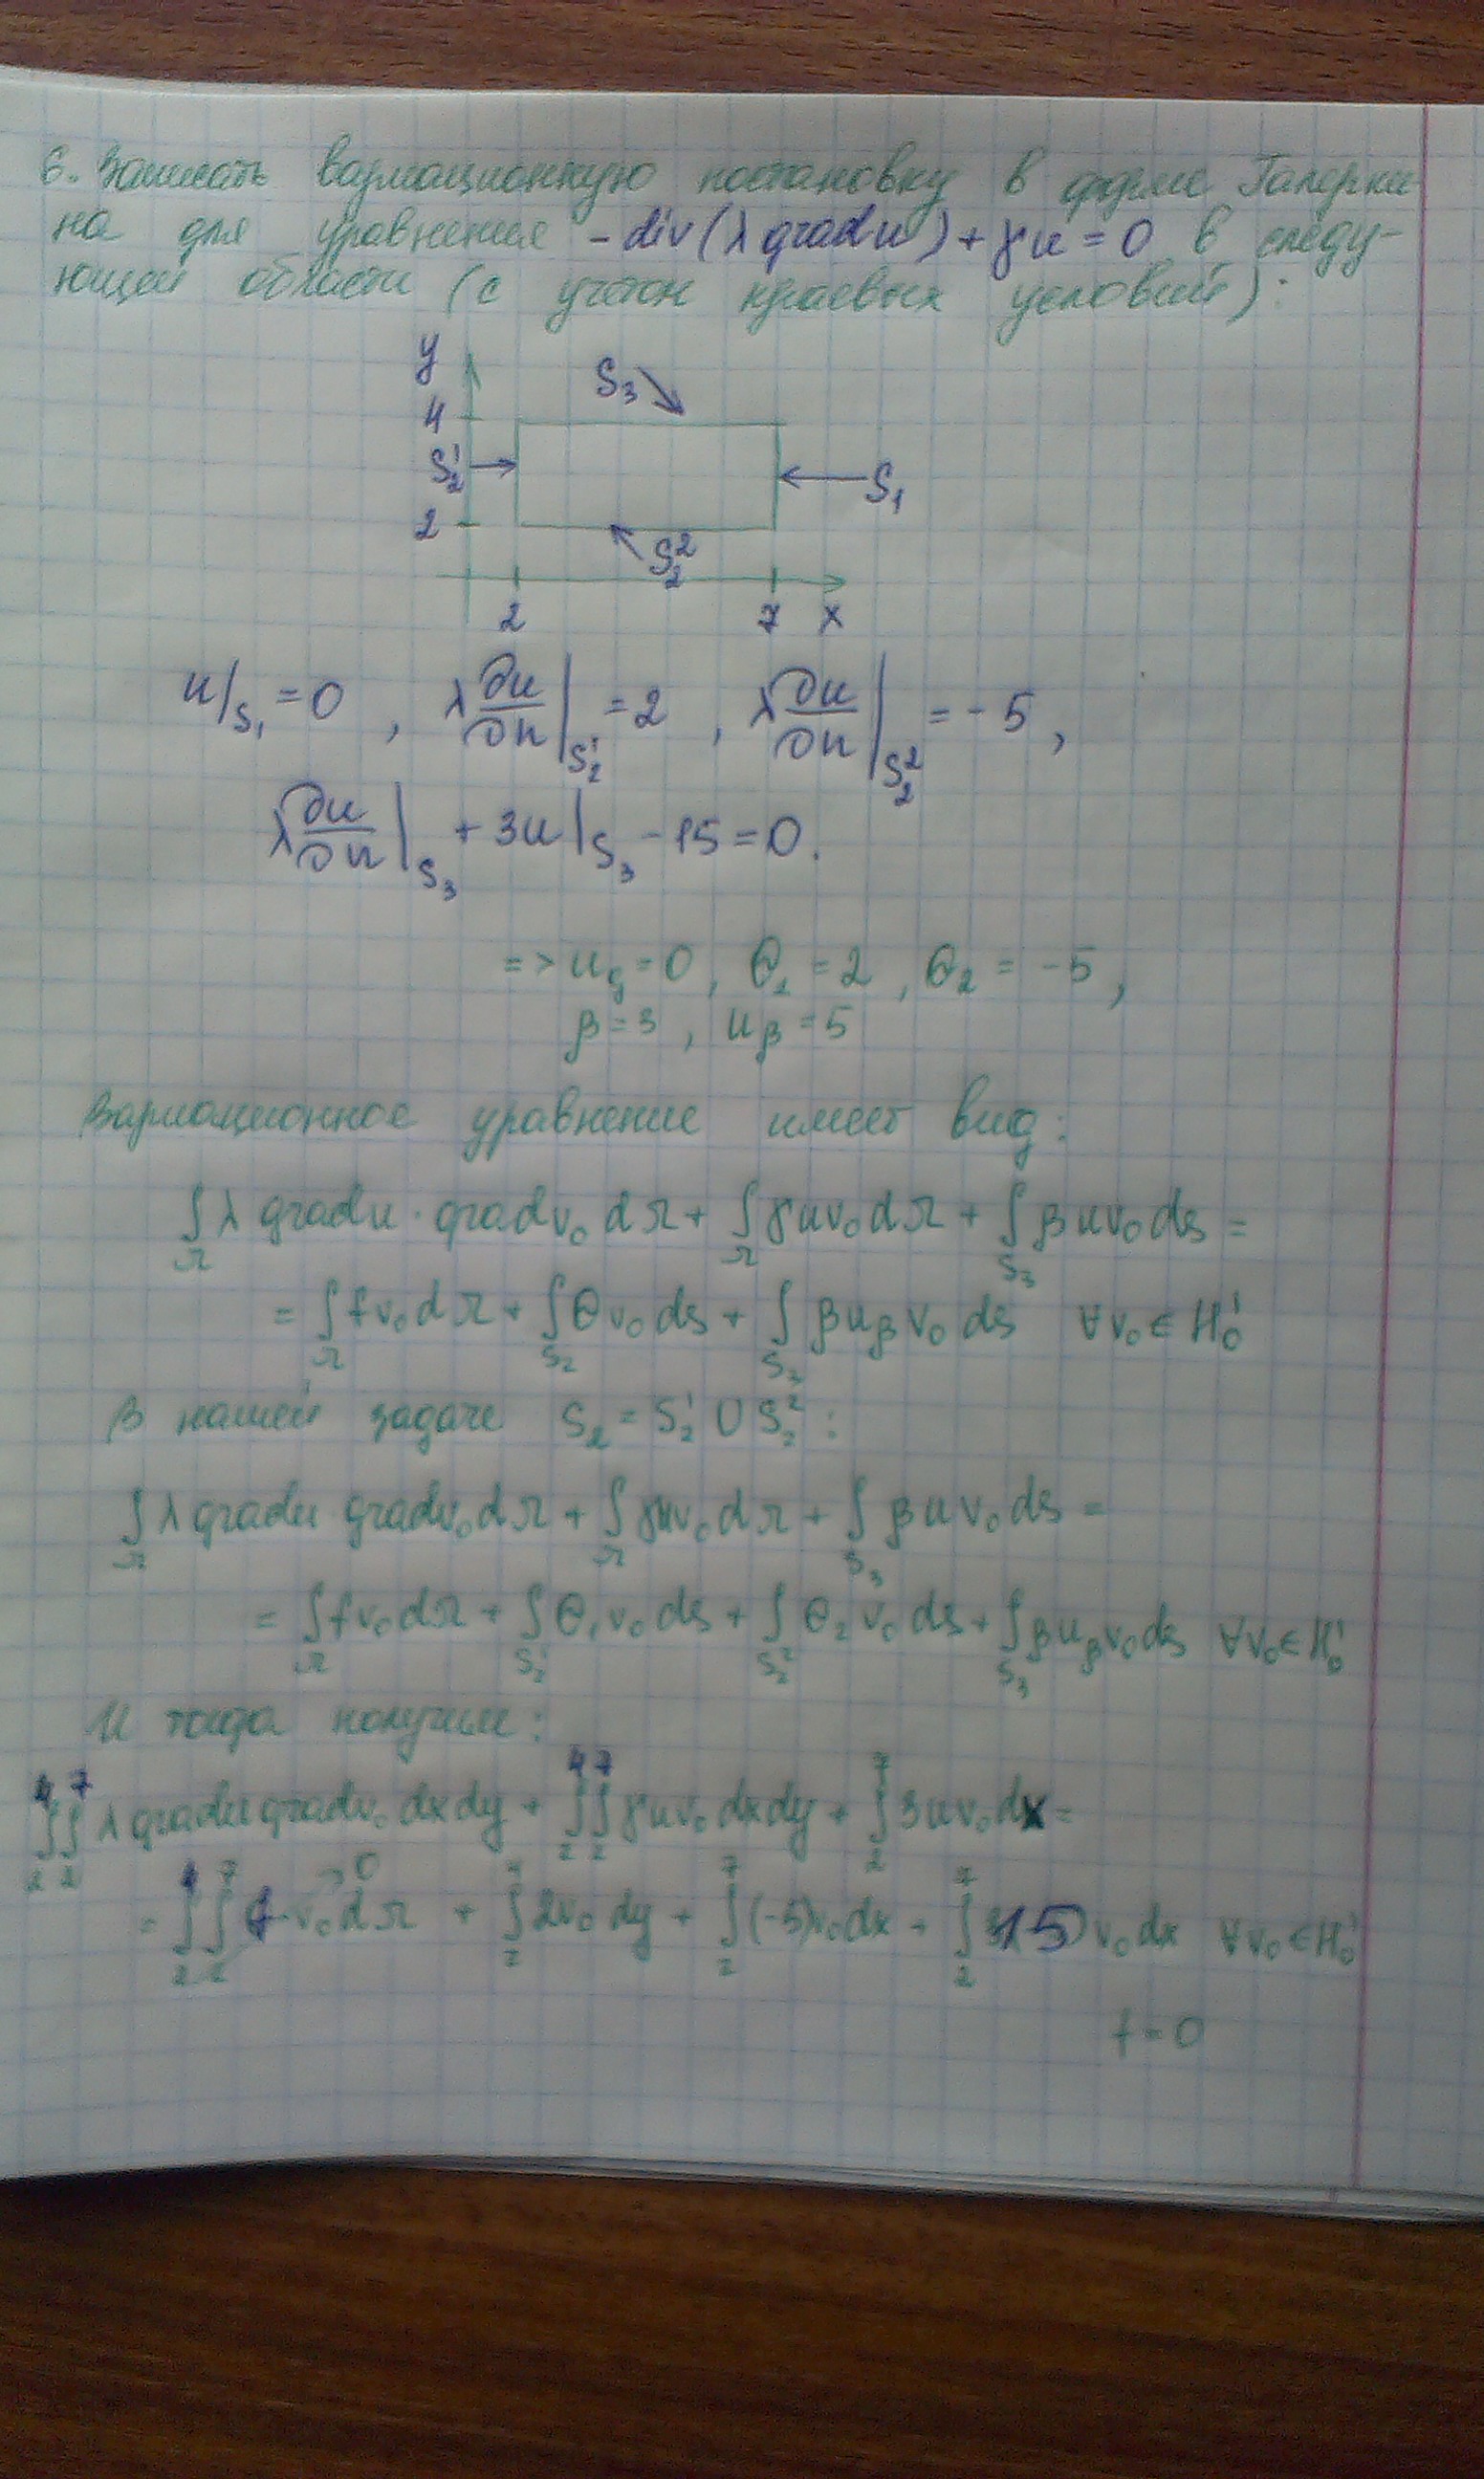 6. Записать вариационную постановку в форме Галерки-
на для уравнения -div(λ grad u) + γu = 0 в следу-
ющей области (с учетом краевых условий):
y
S₃
4
S₂¹
S₁
2
S₂²
2 7 x
u|S₁ = 0 , λ ∂u/∂n|S₂¹ = 2 , λ ∂u/∂n|S₂² = -5 ,
λ ∂u/∂n|S₃ + 3u|S₃ - 15 = 0.
=> u_g = 0, θ₁ = 2, θ₂ = -5,
β = 3, u_β = 5
Вариационное уравнение имеет вид:
∫_Ω λ grad u · grad v₀ dΩ + ∫_Ω γuv₀ dΩ + ∫_S₃ βuv₀ ds =
= ∫_Ω fv₀ dΩ + ∫_S₂ θv₀ ds + ∫_S₃ βu_βv₀ ds ∀v₀ ∈ H₀¹
В нашей задаче S₂ = S₂¹ ∪ S₂² :
∫_Ω λ grad u grad v₀ dΩ + ∫_Ω γuv₀ dΩ + ∫_S₃ βuv₀ ds =
= ∫_Ω fv₀ dΩ + ∫_S₂¹ θ₁v₀ ds + ∫_S₂² θ₂v₀ ds + ∫_S₃ βu_βv₀ ds ∀v₀ ∈ H₀¹
И тогда получим:
∫₂⁴∫₂⁷ λ grad u grad v₀ dxdy + ∫₂⁴∫₂⁷ γuv₀ dxdy + ∫₂⁷ 3uv₀ dx =
= ∫₂⁴∫₂⁷ f·v₀ dΩ → 0 + ∫₂⁴ 2v₀ dy + ∫₂⁷ (-5)v₀ dx + ∫₂⁷ 15 v₀ dx ∀v₀ ∈ H₀¹
f = 0